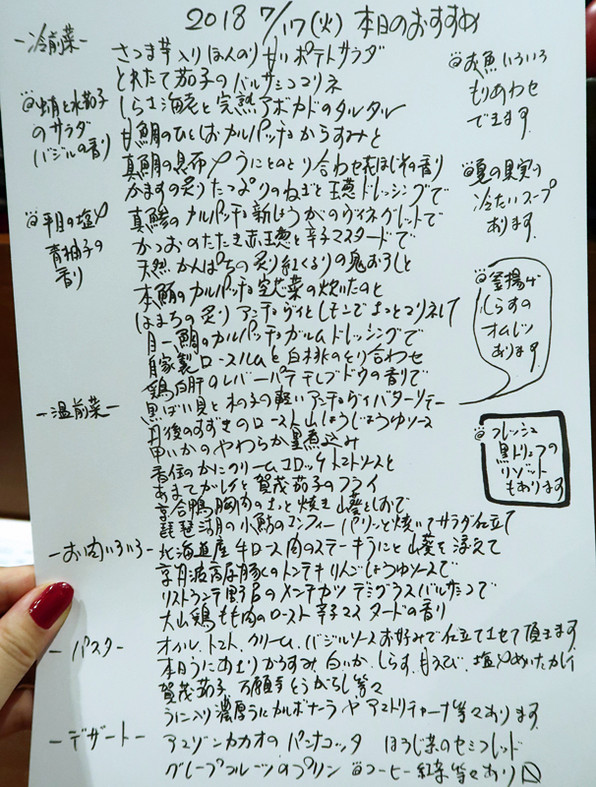 2018 7/17(火) 本日のおすすめ
-冷前菜-
さつま芋入りほんのり甘いポテトサラダ
とれたて茄子のバルサミコマリネ
しらさ海老と完熟アボカドのタルタル
甘鯛のひとしおカルパッチョからすみと
真鯛の昆布〆うにとのとり合わせ花ほじその香り
かますの炙りたっぷりのねぎと玉葱ドレッシングで
真鯵のカルパッチョ新しょうがのヴィネグレットで
かつおのたたき赤玉葱と辛子マスタードで
天然かんぱちの炙り紅くるりの鬼おろしと
本鮪のカルパッチョ空芯菜の炊いたのと
はまちの炙り アンチョヴィとレモンでさっとマリネして
のカルパッチョガルムドレッシングで
自家製ロースハムと白桃のとり合わせ
鶏白肝のレバーパテ干しブドウの香りで
@蛸と水茄子
のサラダ
バジルの香り
@平目の塩〆
青柚子の
香り
@お魚いろいろ
もりあわせ
できます
@夏の果実の
冷たいスープ
あります
@釜揚げ
しらすの
オムレツ
あります
-温前菜-
黒ばい貝と木の子の軽いアンチョヴィバターソテー
丹後のすずきのロースト山しょうじょうゆソース
甲いかのやわらか墨煮込み
香住のかにクリームコロッケトマトソースと
あまてがれいと賀茂茄子のフライ
京合鴨胸肉のさっと焼き山葵としおで
琵琶湖の小鮎のコンフィー パリーッと焼いてサラダ仕立て
@フレッシュ
黒トリュフの
リゾット
もあります
-お肉いろいろ-
北海道産牛ロース肉のステーキうにと山葵を添えて
京丹波高原豚のトンテキりんごじょうゆソースで
リストランテ野呂のメンチカツ デミグラスバルサミコで
大山鶏もも肉のロースト辛子マスタードの香り
-パスタ-
オイル、トマト、クリーム、バジルソースお好みで仕立てさせて頂きます
本日うにあさりからすみ、白いか、しらす、甘えび、塩〆めいたカレイ
賀茂茄子、万願寺とうがらし等々
うに入り濃厚うにカルボナーラやアマトリチャーナ等々あります
-デザート-
アマゾンカカオのパンナコッタ ほうじ茶のセミフレッド
グレープフルーツのプリン @コーヒー紅茶等々あり〼